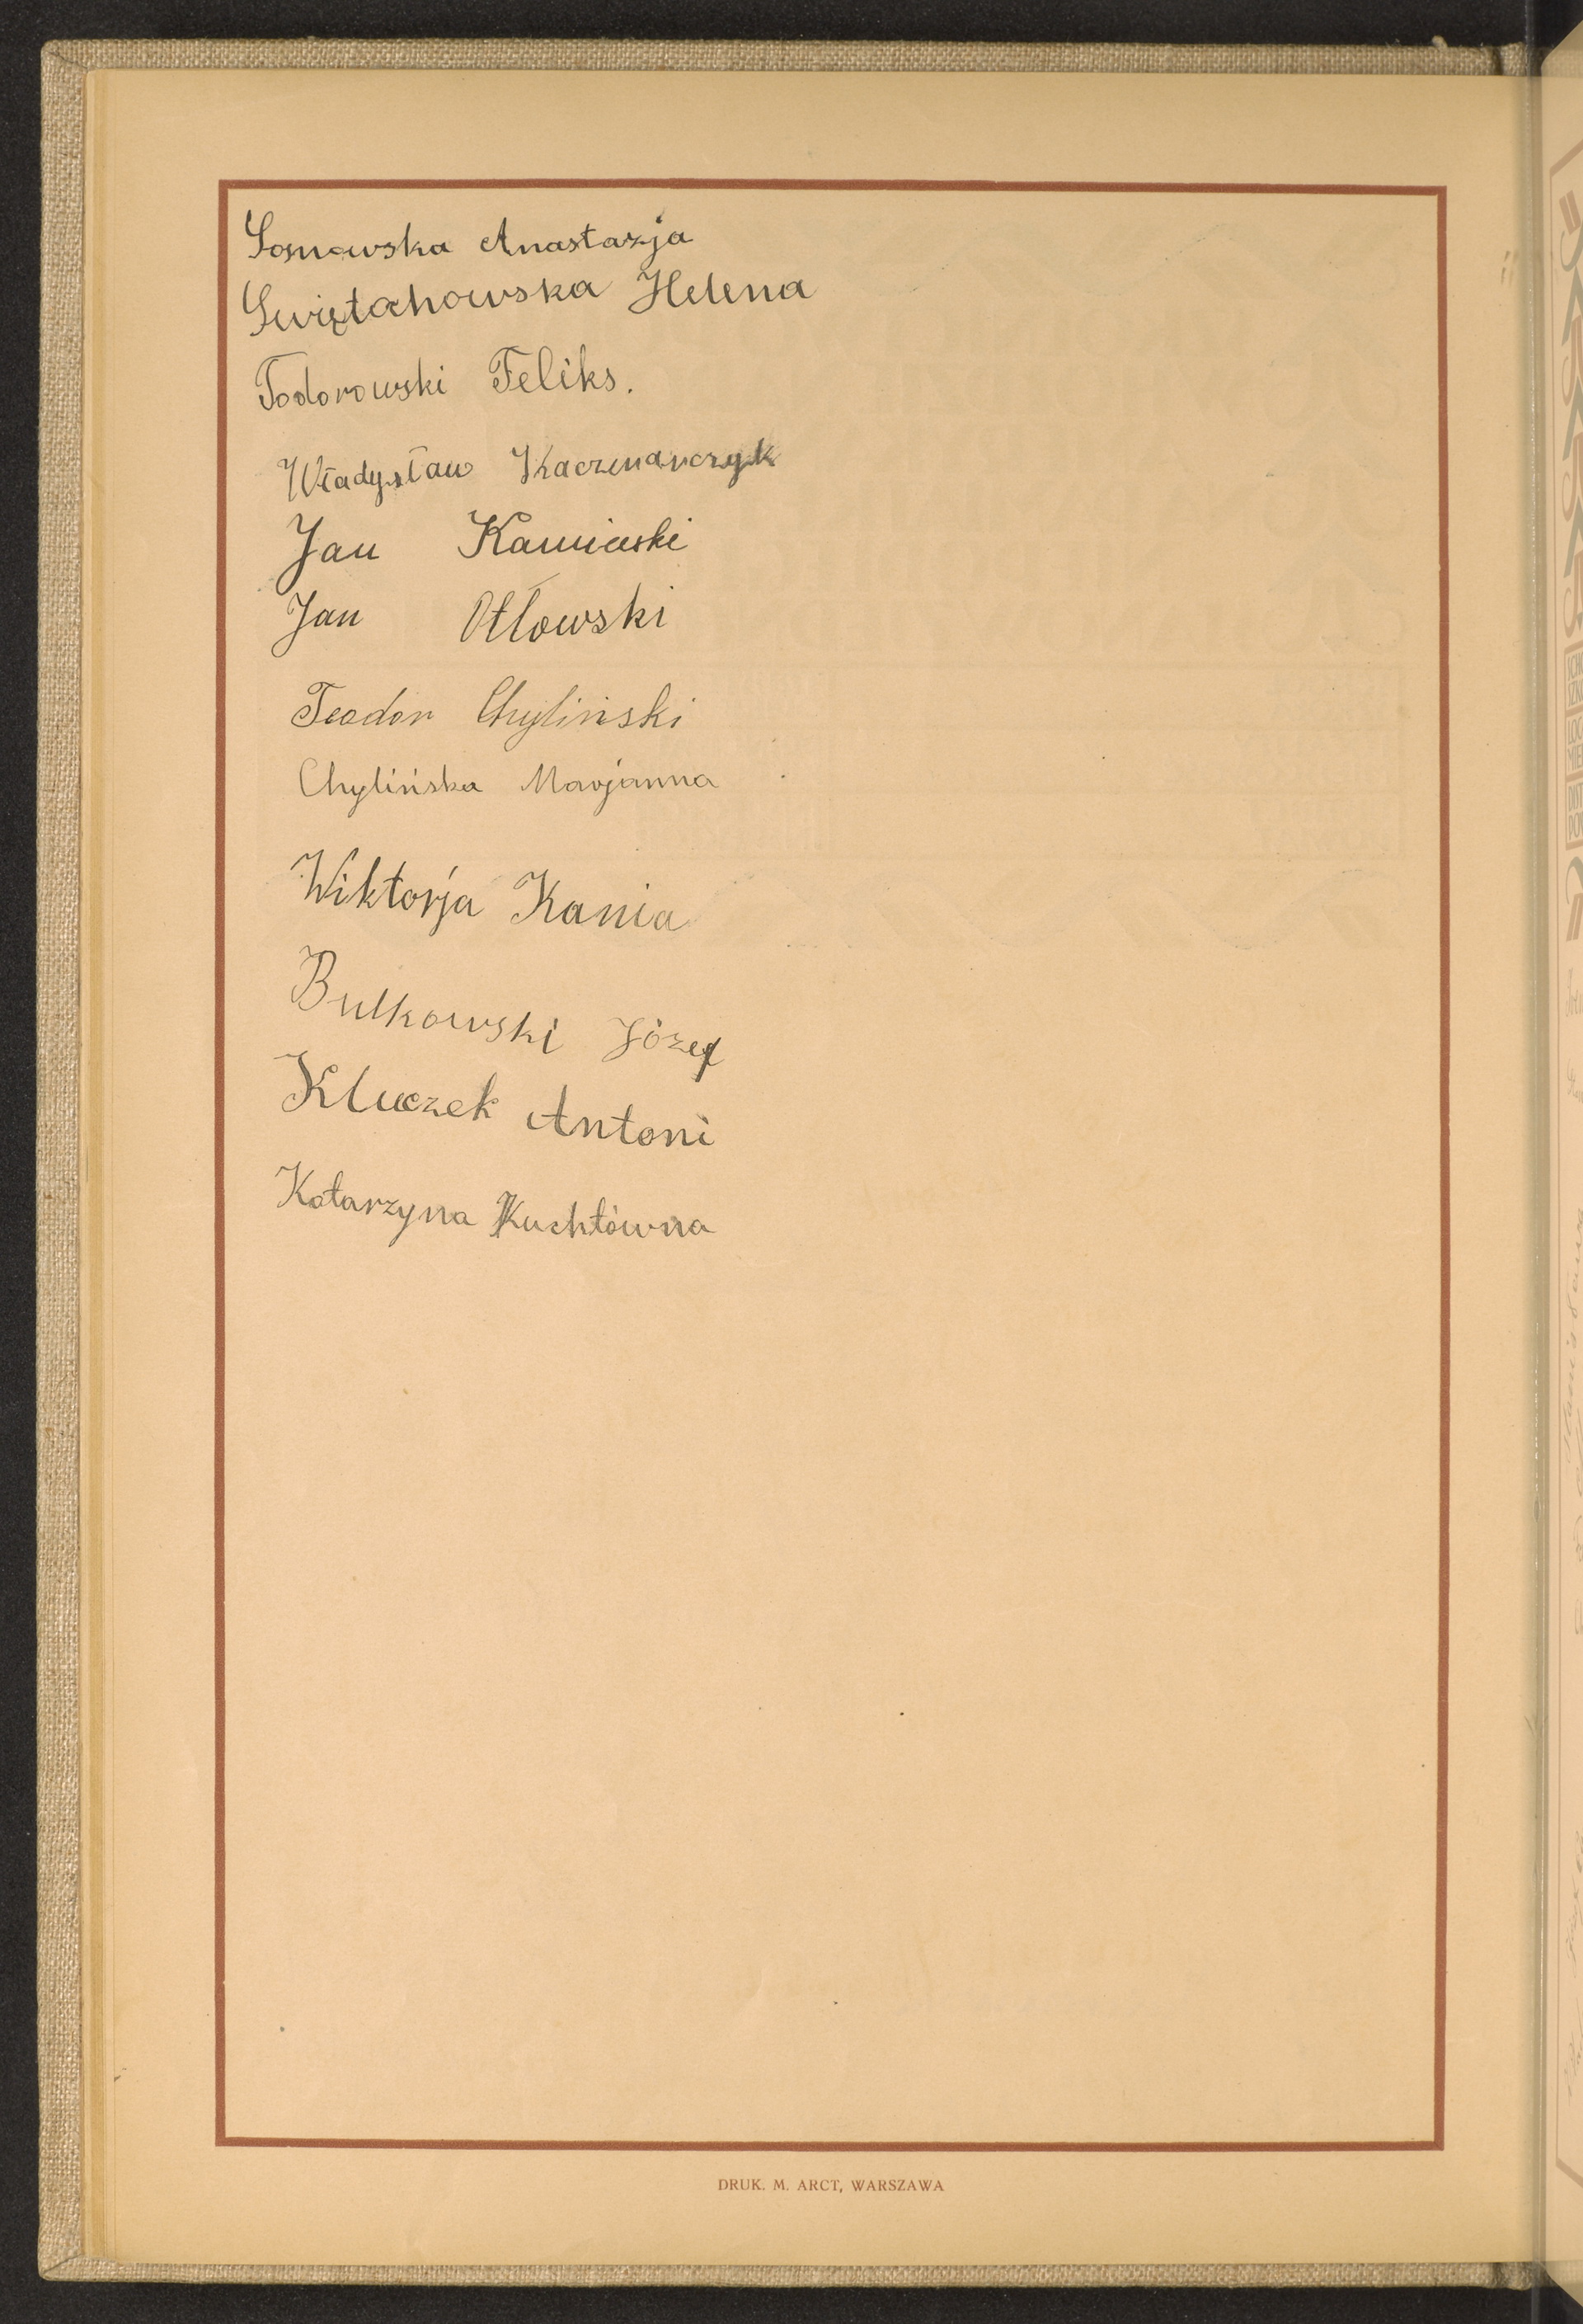 Sosnowska Anastazja
Swiętochowska Helena
Todorowski Feliks.
Władysław Kaczmarczyk
Jan Kamiński
Jan Otłowski
Teodor Chyliński
Chylińska Marjanna
Wiktorja Kania
Bulkowski Józef
Kluczek Antoni
Katarzyna Kuchtówna
DRUK. M. ARCT, WARSZAWA